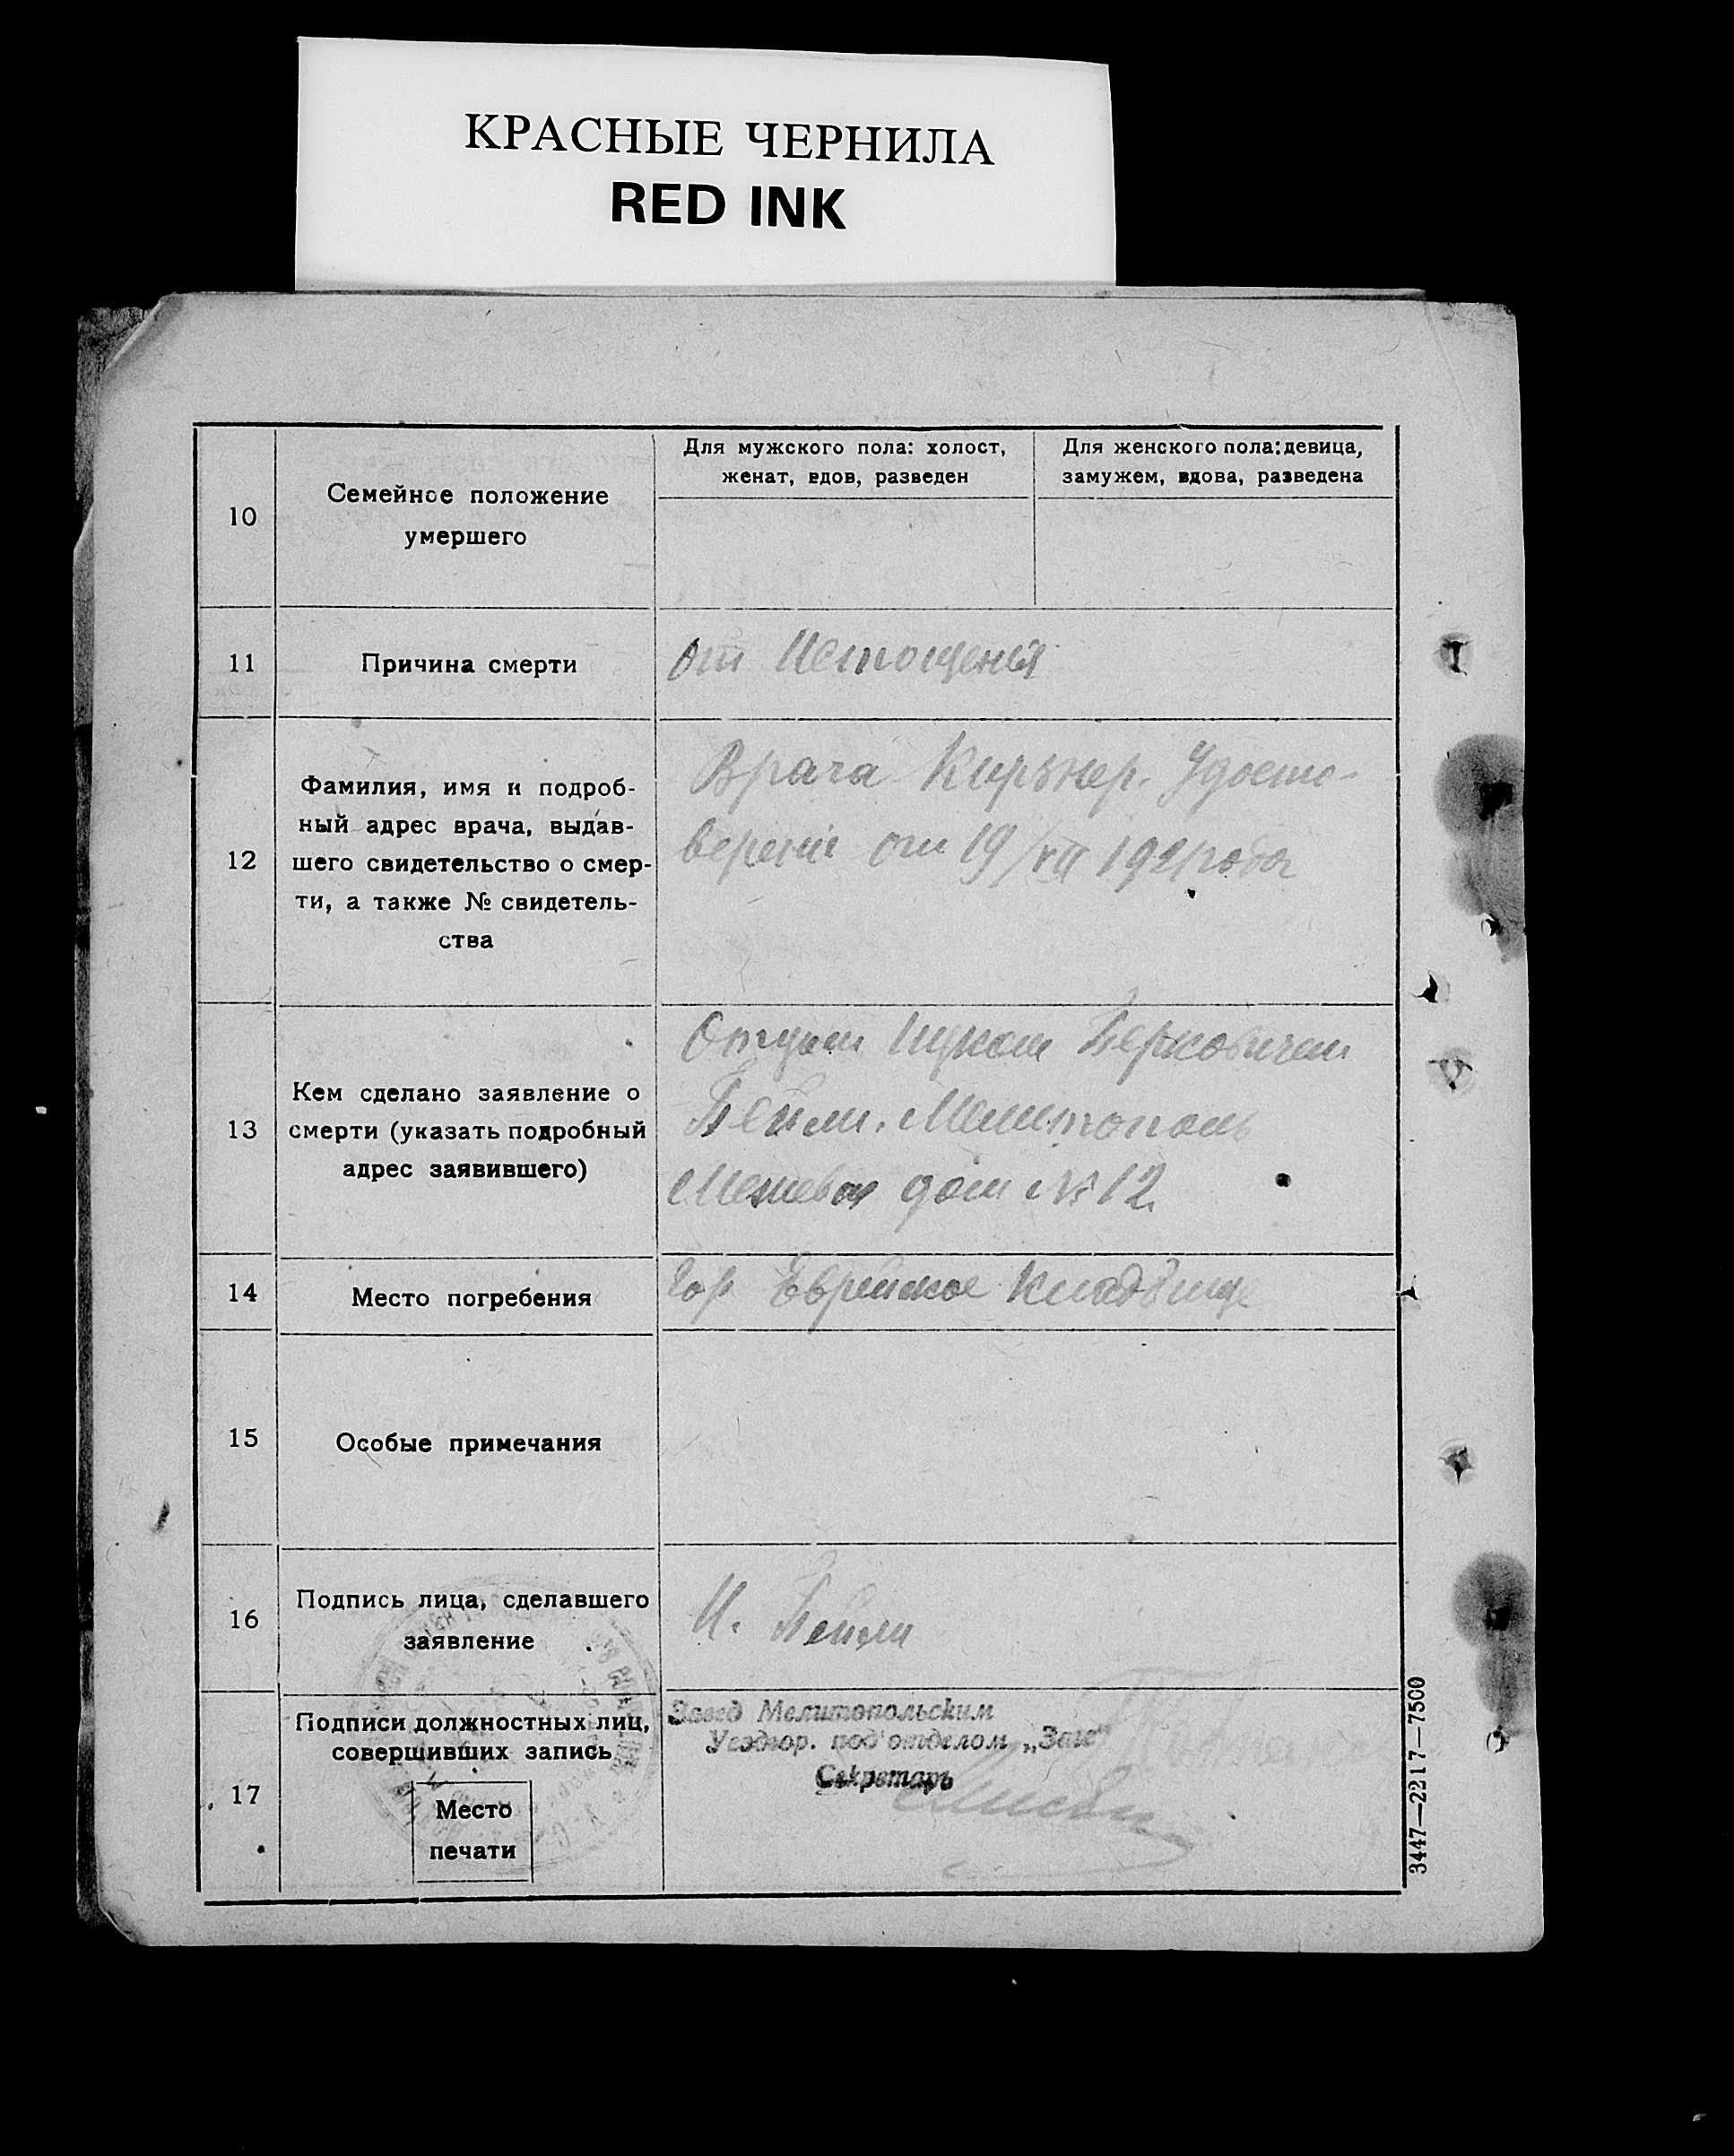 КРАСНЫЕ ЧЕРНИЛА
RED INK
10
Семейное положение
умершего
Для мужского пола: холост,
женат, вдов, разведен
Для женского пола: девица,
замужем, вдова, разведена
11
Причина смерти
От Истощения
12
Фамилия, имя и подроб-
ный адрес врача, выдав-
шего свидетельство о смер-
ти, а также № свидетель-
ства
Врача Киръкер. Удосто-
верение от 19/VII 1921 года
13
Кем сделано заявление о
смерти (указать подробный
адрес заявившего)
Отцом Ицком Берковичем
Бейли. Мелитополь
Межевая дом №12.
14
Место погребения
Гор Еврейское кладбище
15
Особые примечания
16
Подпись лица, сделавшего
заявление
И. Бейли
17
Подписи должностных лиц,
совершивших запись
Место
печати
Завед Мелитопольским
Уездгор. под'отделом „Загс"
Секретарь
3447—2217—7500